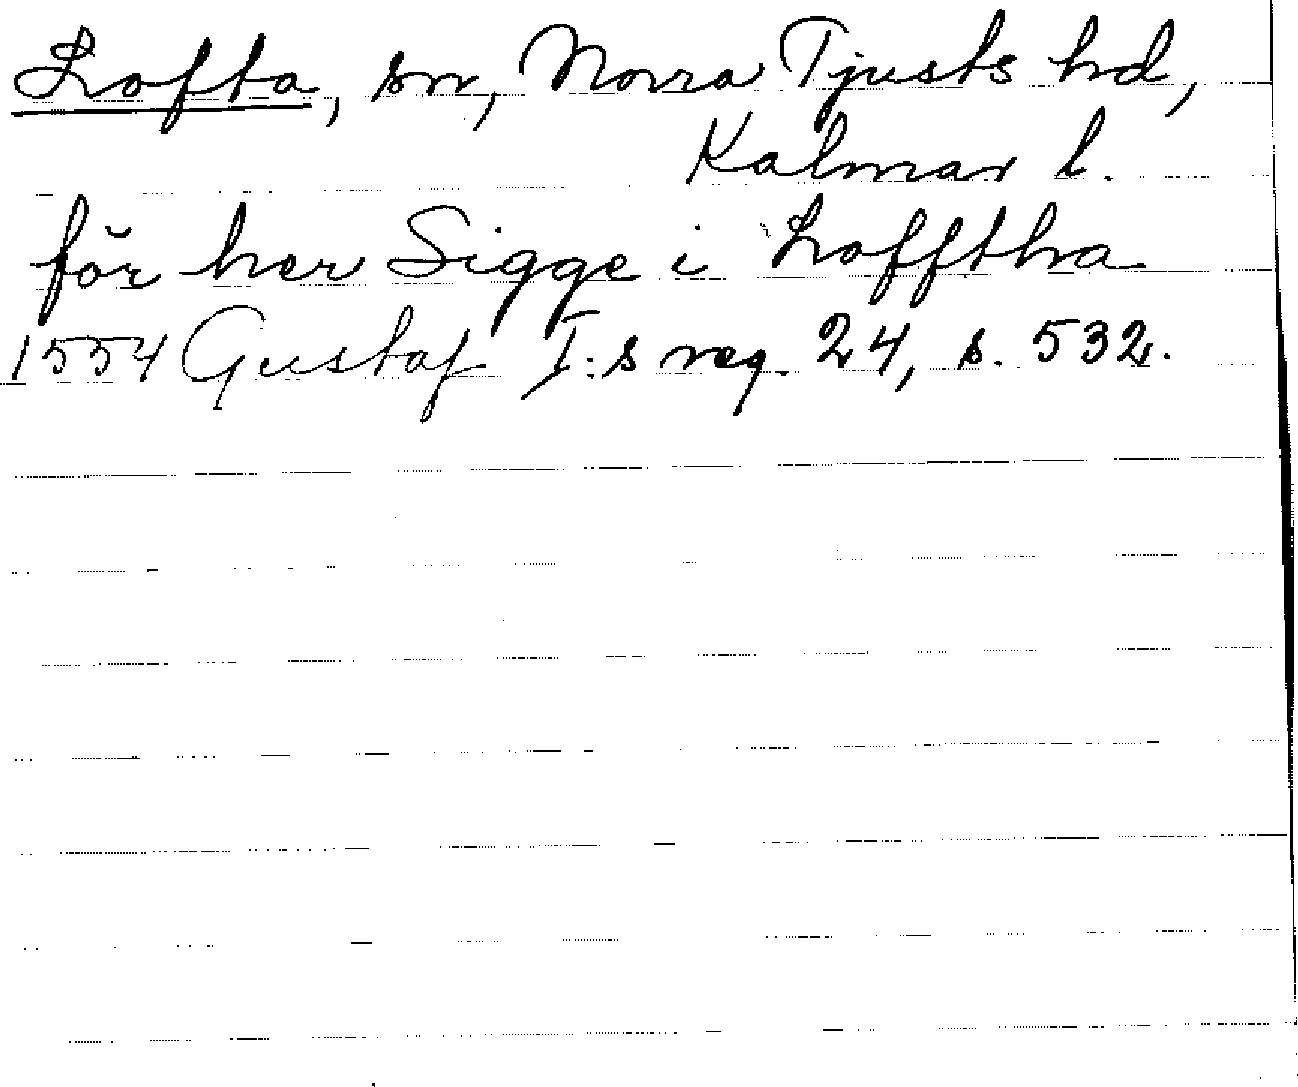 Lofta, sn, Norra Tjusts hd,
Kalmar l.
för her Sigge i Lofftha
1554 Gustaf I:s reg. 24, s. 532.